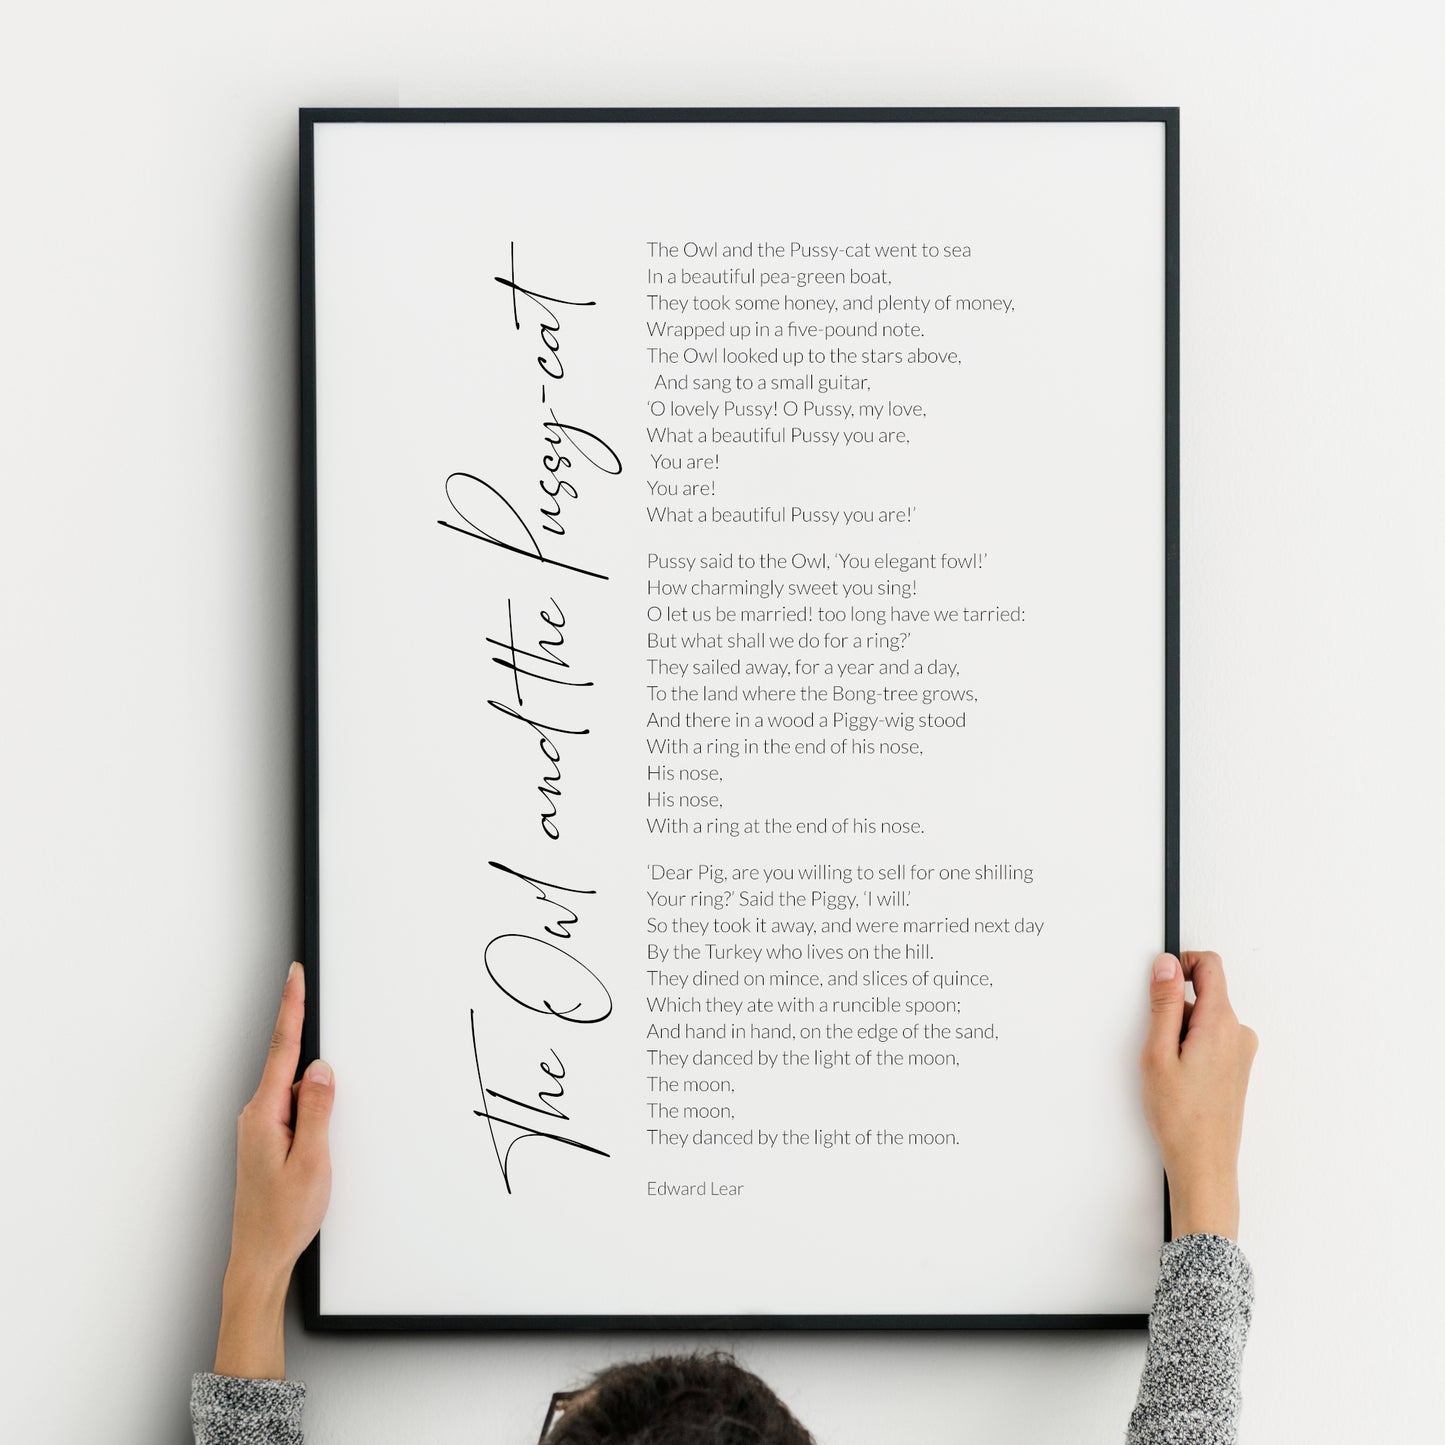 The Owl and the Pussy-cat
The Owl and the Pussy-cat went to sea
In a beautiful pea-green boat,
They took some honey, and plenty of money,
Wrapped up in a five-pound note.
The Owl looked up to the stars above,
And sang to a small guitar,
‘O lovely Pussy! O Pussy, my love,
What a beautiful Pussy you are,
You are!
You are!
What a beautiful Pussy you are!’

Pussy said to the Owl, ‘You elegant fowl!’
How charmingly sweet you sing!
O let us be married! too long have we tarried:
But what shall we do for a ring?’
They sailed away, for a year and a day,
To the land where the Bong-tree grows,
And there in a wood a Piggy-wig stood
With a ring in the end of his nose,
His nose,
His nose,
With a ring at the end of his nose.

‘Dear Pig, are you willing to sell for one shilling
Your ring?’ Said the Piggy, ‘I will.’
So they took it away, and were married next day
By the Turkey who lives on the hill.
They dined on mince, and slices of quince,
Which they ate with a runcible spoon;
And hand in hand, on the edge of the sand,
They danced by the light of the moon,
The moon,
The moon,
They danced by the light of the moon.

Edward Lear